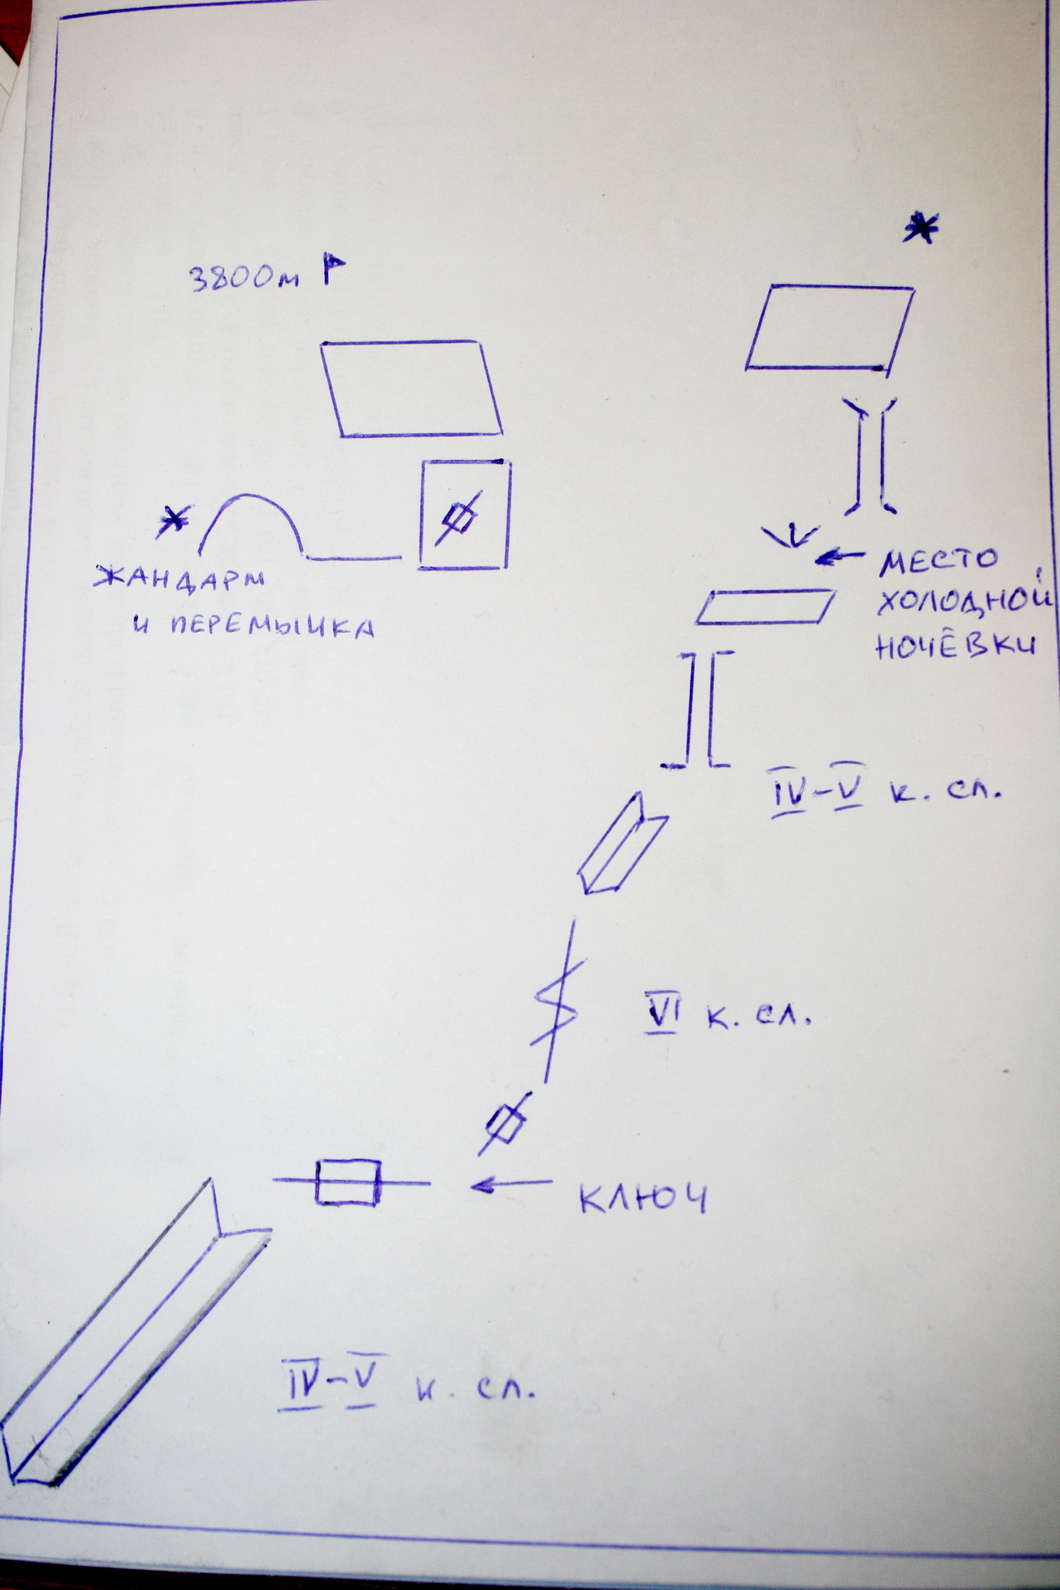 3800м
ЖАНДАРМ
И ПЕРЕМЫЧКА
МЕСТО
ХОЛОДНОЙ
НОЧЁВКИ
IV-V к. сл.
VI к. сл.
КЛЮЧ
IV-V к. сл.